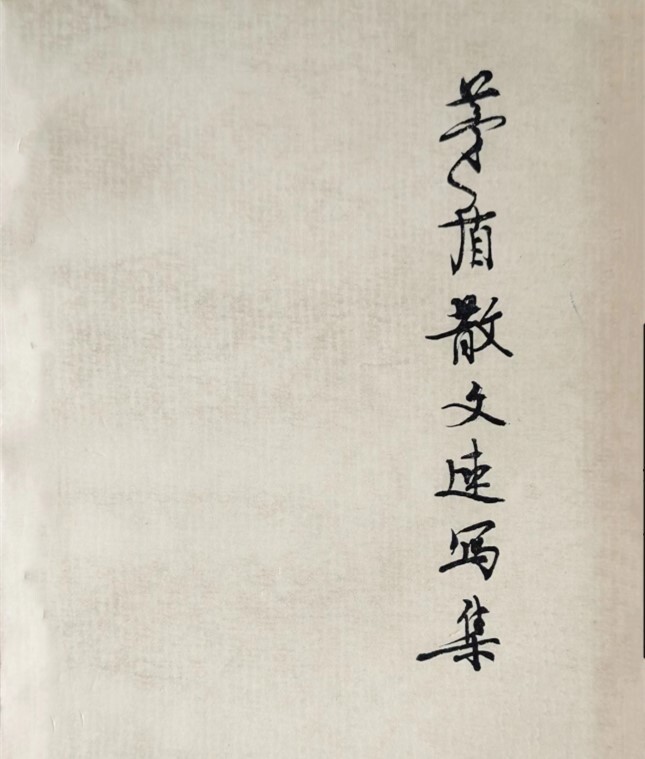 茅盾散文速写集